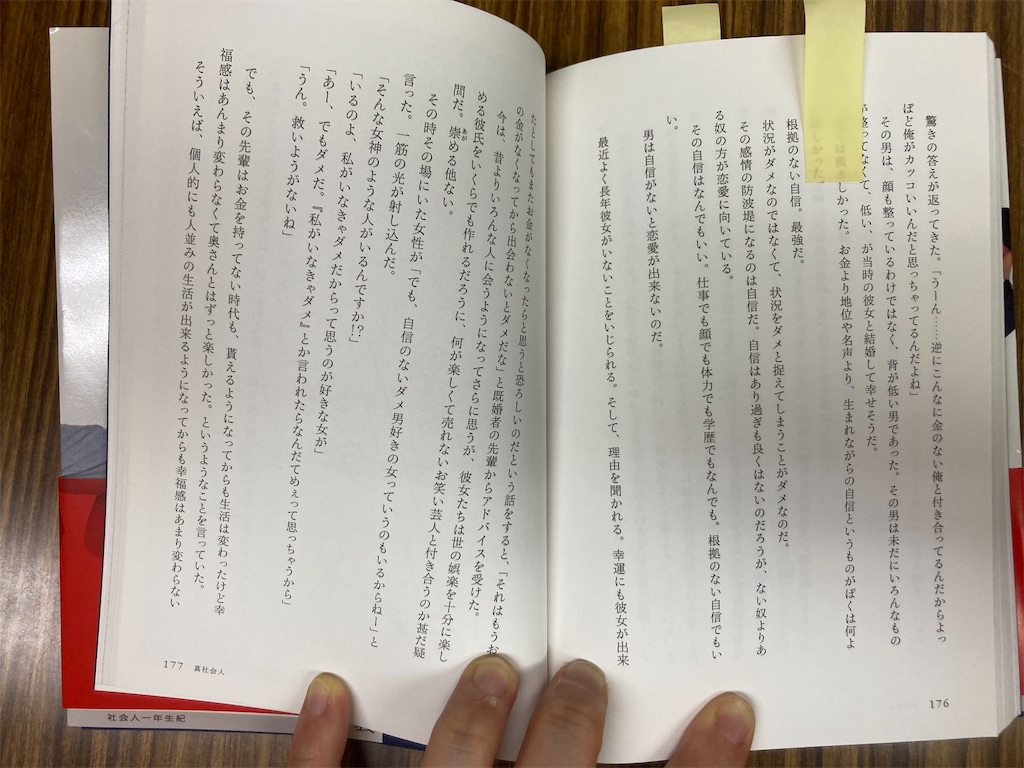 驚きの答えが返ってきた。「うーん……逆にこんなに金のない俺と付き合ってるんだからよっ
ぽど俺がカッコいいんだと思っちゃってるんだよね」
その男は、顔も整っているわけではなく、背が低い男であった。その男は未だにいろんなもの
が整ってなくて、低い、が当時の彼女と結婚して幸せそうだ。
しかった。お金より地位や名声より、生まれながらの自信というものがぼくは何よ
根拠のない自信。最強だ。
状況がダメなのではなくて、状況をダメと捉えてしまうことがダメなのだ。
その感情の防波堤になるのは自信だ。自信はあり過ぎも良くはないのだろうが、ない奴よりあ
る奴の方が恋愛に向いている。
その自信はなんでもいい。仕事でも顔でも体力でも学歴でもなんでも。根拠のない自信でもい
い。
男は自信がないと恋愛が出来ないのだ。
最近よく長年彼女がいないことをいじられる。そして、理由を聞かれる。幸運にも彼女が出来
176
たとしてもまたお金がなくなったらと思うと恐ろしいのだという話をすると、「それはもうお
の金がなくなってから出会わないとダメだな」と既婚者の先輩からアドバイスを受けた。
今は、昔よりいろんな人に会うようになってさらに思うが、彼女たちは世の娯楽を十分に楽し
める彼氏をいくらでも作れるだろうに、何が楽しくて売れないお笑い芸人と付き合うのか甚だ疑
問だ。崇める他ない。
あが
その時その場にいた女性が「でも、自信のないダメ男好きの女っていうのもいるからねー」と
言った。一筋の光が射し込んだ。
「そんな女神のような人がいるんですか!?」
「いるのよ、私がいなきゃダメだからって思うのが好きな女が」
「あー、でもダメだ。『私がいなきゃダメ』とか言われたらなんだてめぇって思っちゃうから」
「うん。救いようがないね」
でも、その先輩はお金を持ってない時代も、貰えるようになってからも生活は変わったけど幸
福感はあんまり変わらなくて奥さんとはずっと楽しかった。というようなことを言っていた。
そういえば、個人的にも人並みの生活が出来るようになってからも幸福感はあまり変わらない
177 真社会人
社会人一年生紀